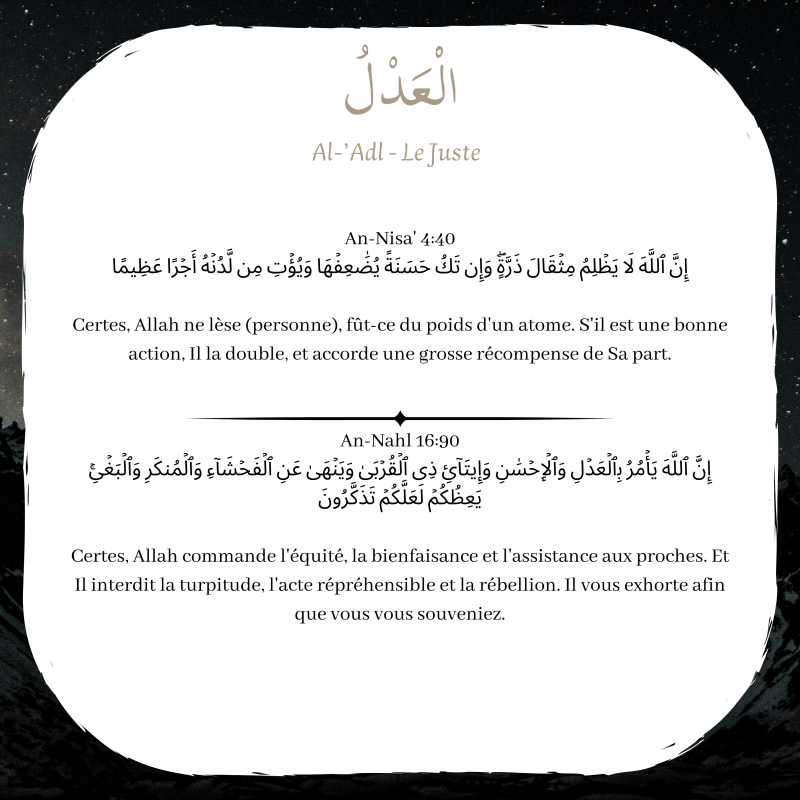 الْعَدْلُ
Al-'Adl - Le Juste
An-Nisa' 4:40
إِنَّ ٱللَّهَ لَا يَظْلِمُ مِثْقَالَ ذَرَّةٍۢ ۖ وَإِن تَكُ حَسَنَةًۭ يُضَٰعِفْهَا وَيُؤْتِ مِن لَّدُنْهُ أَجْرًا عَظِيمًا
Certes, Allah ne lèse (personne), fût-ce du poids d'un atome. S'il est une bonne
action, Il la double, et accorde une grosse récompense de Sa part.
An-Nahl 16:90
إِنَّ ٱللَّهَ يَأْمُرُ بِٱلْعَدْلِ وَٱلْإِحْسَٰنِ وَإِيتَآئِ ذِى ٱلْقُرْبَىٰ وَيَنْهَىٰ عَنِ ٱلْفَحْشَآءِ وَٱلْمُنكَرِ وَٱلْبَغْىِ ۚ
يَعِظُكُمْ لَعَلَّكُمْ تَذَكَّرُونَ
Certes, Allah commande l'équité, la bienfaisance et l'assistance aux proches. Et
Il interdit la turpitude, l'acte répréhensible et la rébellion. Il vous exhorte afin
que vous vous souveniez.